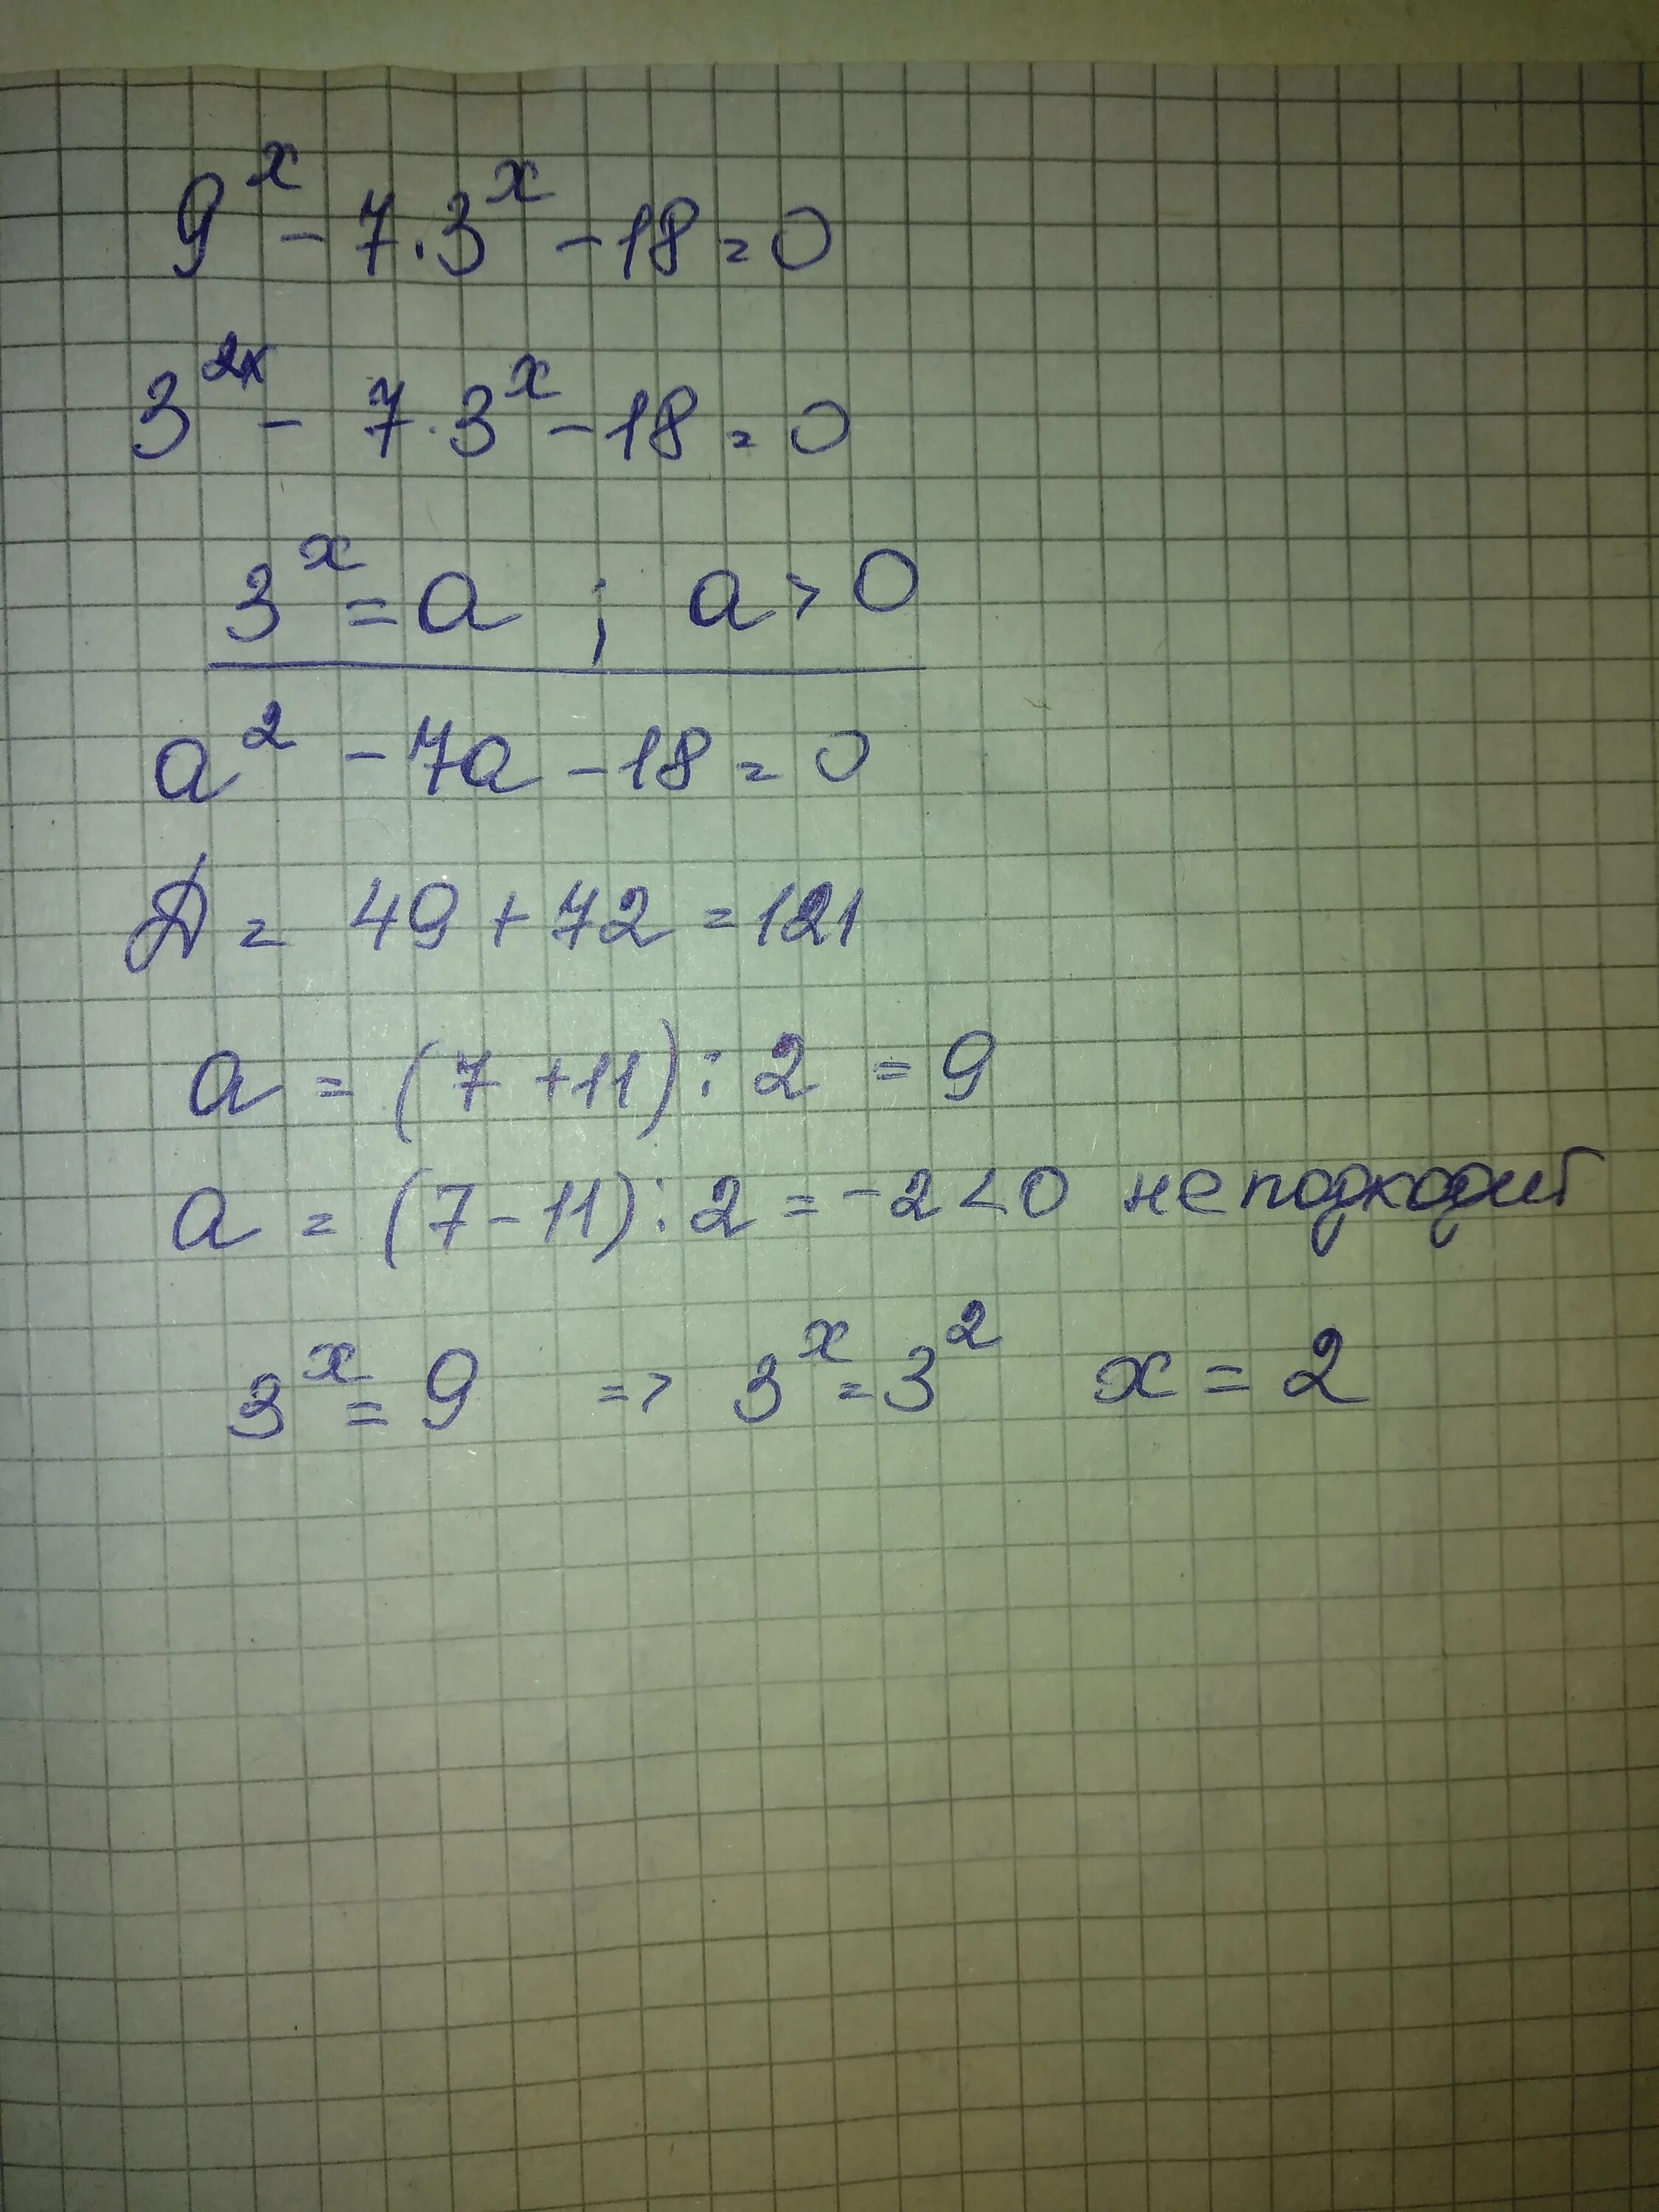 9ˣ - 7·3ˣ - 18 = 0
3²ˣ - 7·3ˣ - 18 = 0
3ˣ = a ; a > 0
a² - 7a - 18 = 0
Д = 49 + 72 = 121
a = (7 + 11) : 2 = 9
a = (7 - 11) : 2 = -2 < 0 не подходит
3ˣ = 9 => 3ˣ = 3² x = 2